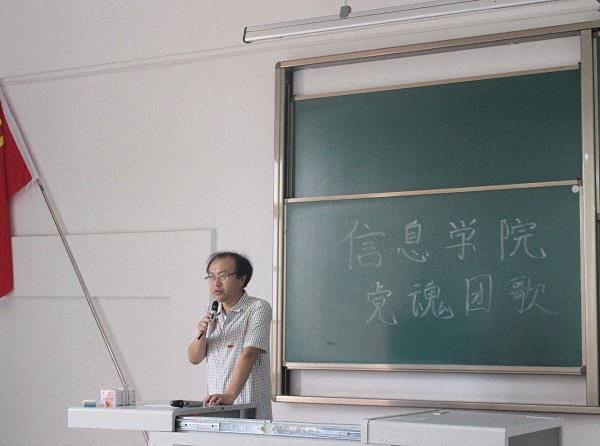 信息学院
党魂团歌